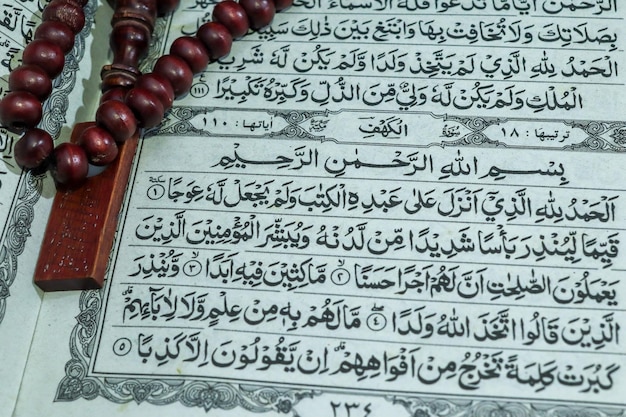 الرَّحْمٰنَ اَيًّامَّا تَدْعُوْا فَلَهُ الْاَسْمَاۤءُ
بِصَلَاتِكَ وَلَا تُخَافِتْ بِهَا وَابْتَغِ بَيْنَ ذٰلِكَ سَبِيْلًا
الْحَمْدُ لِلّٰهِ الَّذِيْ لَمْ يَتَّخِذْ وَلَدًا وَّلَمْ يَكُنْ لَّهٗ شَرِيْكٌ
الْمُلْكِ وَلَمْ يَكُنْ لَّهٗ وَلِيٌّ مِّنَ الذُّلِّ وَكَبِّرْهُ تَكْبِيْرًا ۝١١١
ترتيبها: ١٨ سورة الكهف اٰياتها: ١١٠
بِسْمِ اللّٰهِ الرَّحْمٰنِ الرَّحِيْمِ
اَلْحَمْدُ لِلّٰهِ الَّذِيْٓ اَنْزَلَ عَلٰى عَبْدِهِ الْكِتٰبَ وَلَمْ يَجْعَلْ لَّهٗ عِوَجًا ۝١
قَيِّمًا لِّيُنْذِرَ بَأْسًا شَدِيْدًا مِّنْ لَّدُنْهُ وَيُبَشِّرَ الْمُؤْمِنِيْنَ الَّذِيْنَ
يَعْمَلُوْنَ الصّٰلِحٰتِ اَنَّ لَهُمْ اَجْرًا حَسَنًا ۝٢ مَّاكِثِيْنَ فِيْهِ اَبَدًا ۝٣ وَّيُنْذِرَ
الَّذِيْنَ قَالُوا اتَّخَذَ اللّٰهُ وَلَدًا ۝٤ مَّا لَهُمْ بِهٖ مِنْ عِلْمٍ وَّلَا لِاٰبَاۤىِٕهِمْ
كَبُرَتْ كَلِمَةً تَخْرُجُ مِنْ اَفْوَاهِهِمْ اِنْ يَّقُوْلُوْنَ اِلَّا كَذِبًا ۝٥
٢٣٤